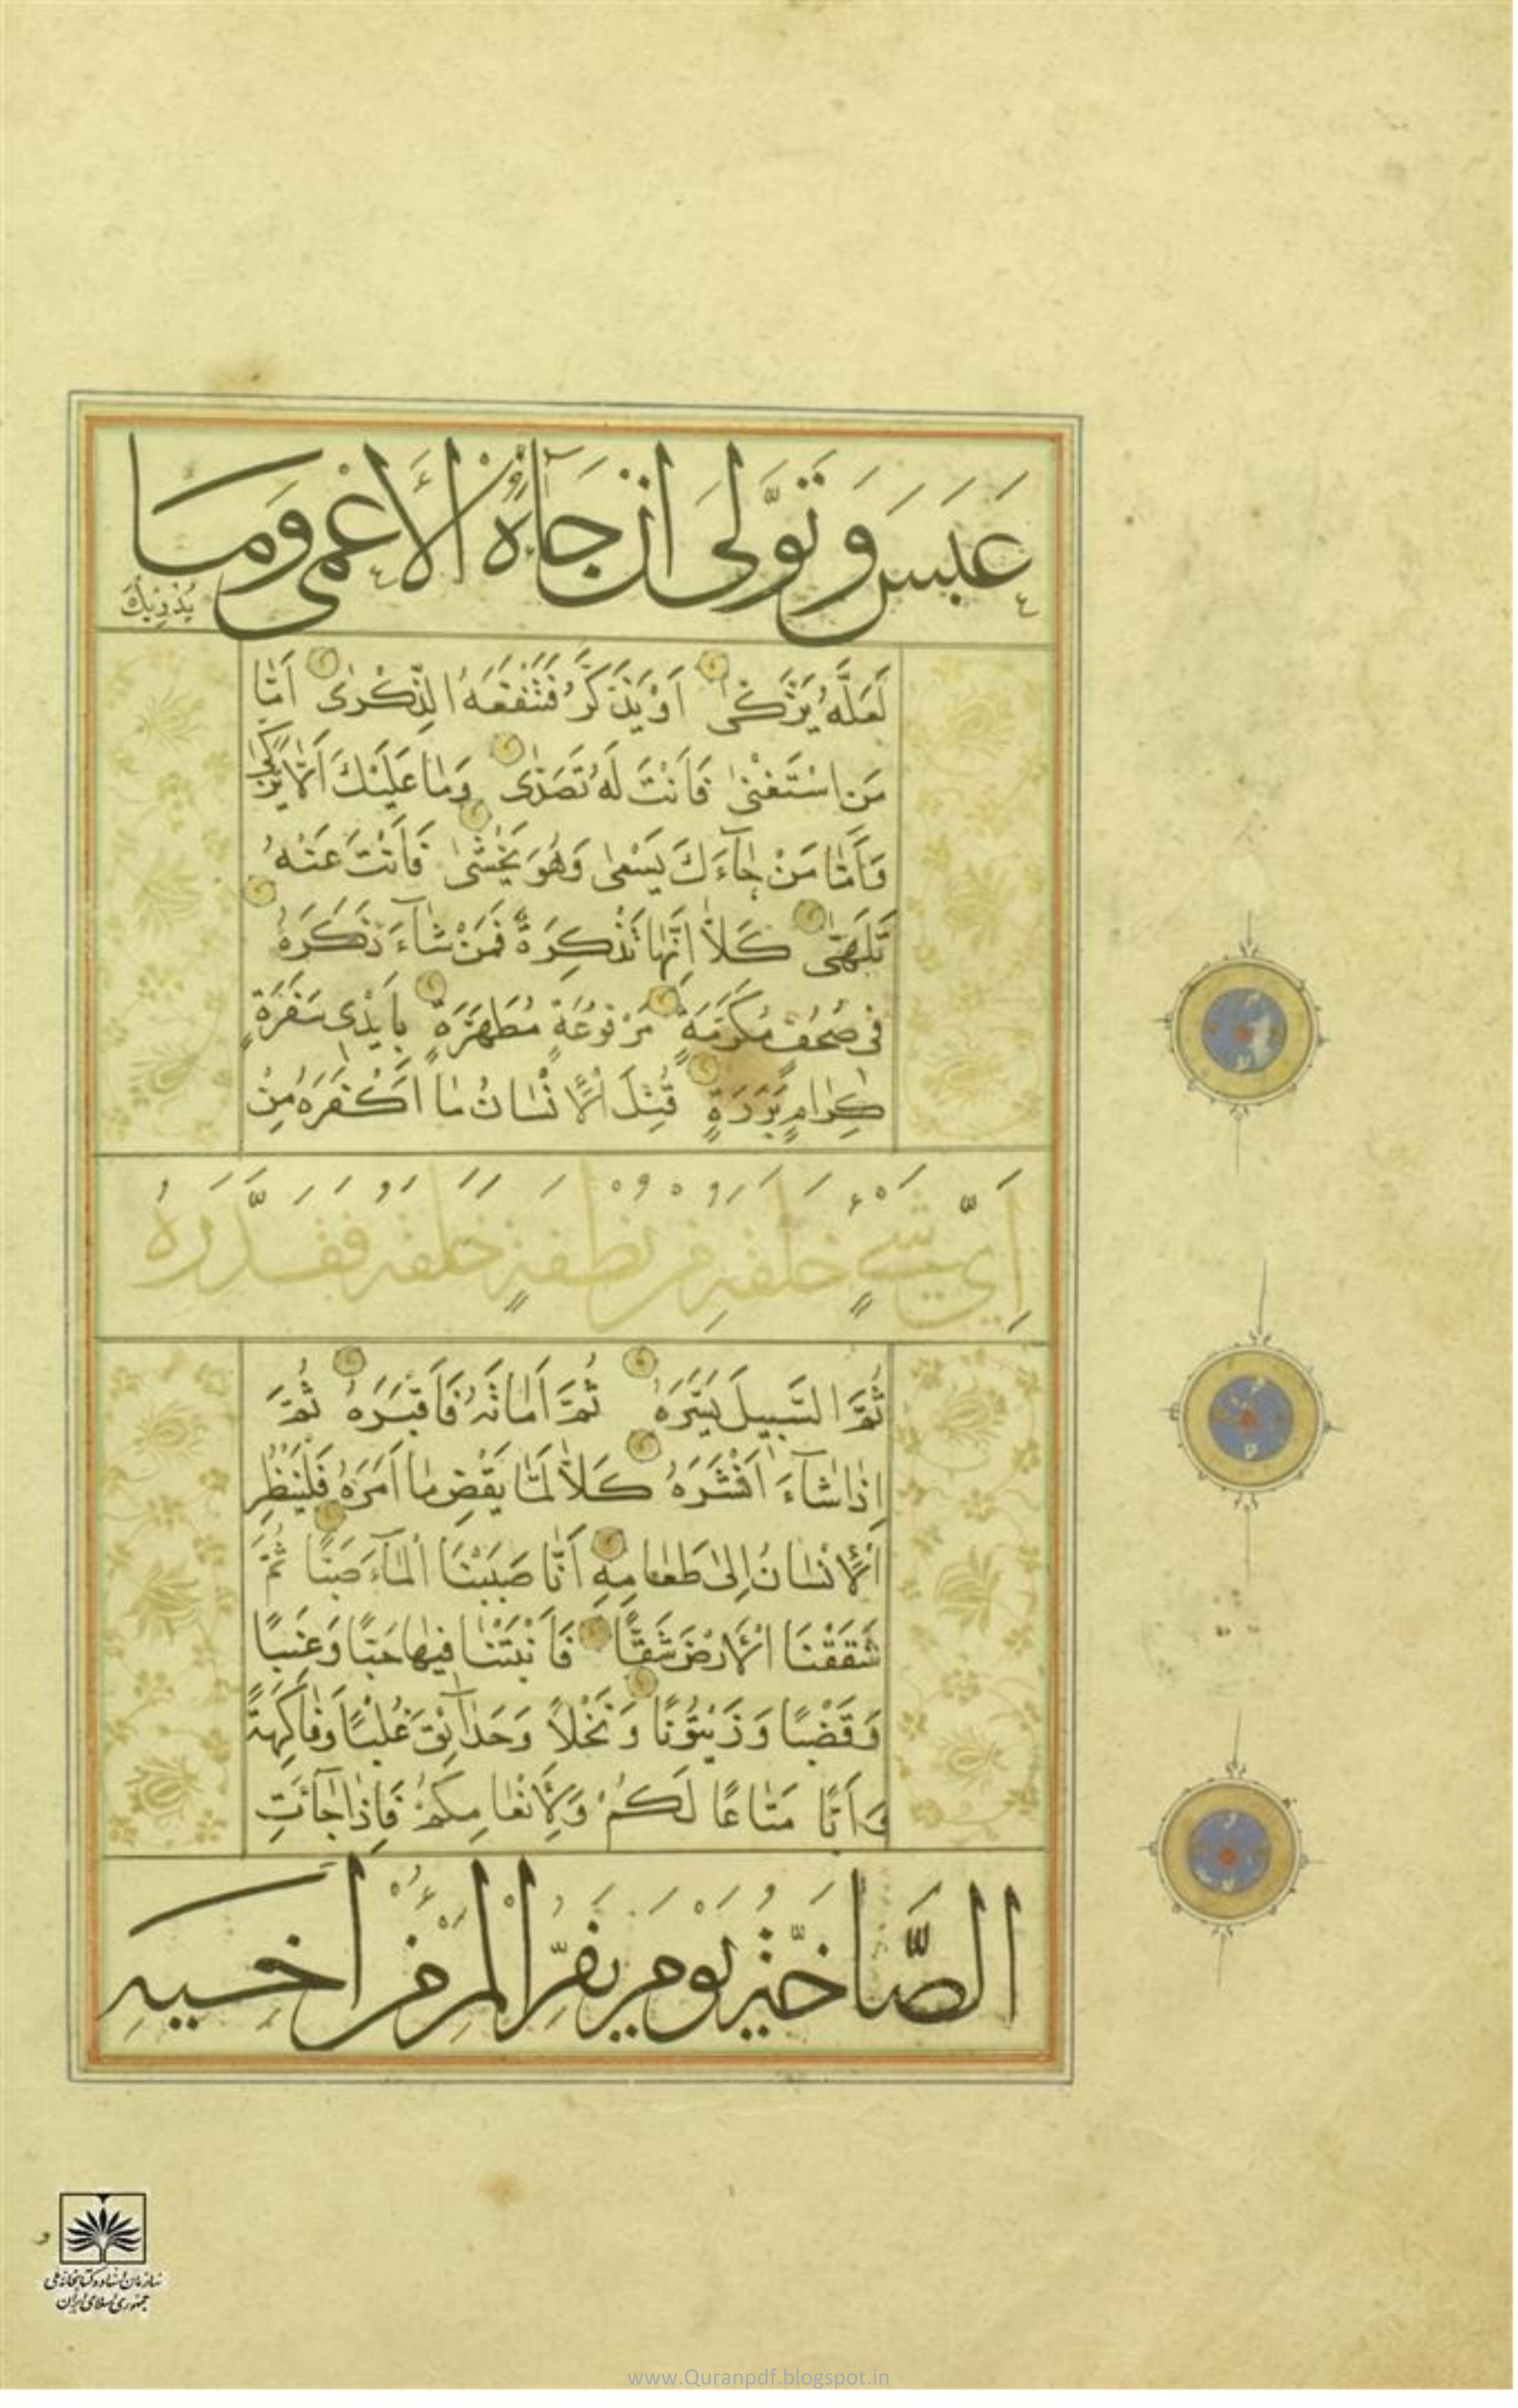 عَبَسَ وَتَوَلّٰى اَنْ جَآءَهُ الْاَعْمٰى وَمَا
يُدْرٖيكَ
لَعَلَّهُ يَزَّكّٰى اَوْ يَذَّكَّرُ فَتَنْفَعَهُ الذِّكْرٰى اَمَّا
مَنِ اسْتَغْنٰى فَاَنْتَ لَهُ تَصَدّٰى وَمَا عَلَيْكَ اَلَّا يَزَّكّٰى
وَاَمَّا مَنْ جَآءَكَ يَسْعٰى وَهُوَ يَخْشٰى فَاَنْتَ عَنْهُ
تَلَهّٰى كَلَّا اِنَّهَا تَذْكِرَةٌ فَمَنْ شَآءَ ذَكَرَهُ
فِى صُحُفٍ مُكَرَّمَةٍ مَرْفُوعَةٍ مُطَهَّرَةٍ بِاَيْدِى سَفَرَةٍ
كِرَامٍ بَرَرَةٍ قُتِلَ الْاِنْسَانُ مَا اَكْفَرَهُ مِنْ
اَىِّ شَىْءٍ خَلَقَهُ مِنْ نُطْفَةٍ خَلَقَهُ فَقَدَّرَهُ
ثُمَّ السَّبِيلَ يَسَّرَهُ ثُمَّ اَمَاتَهُ فَاَقْبَرَهُ ثُمَّ
اِذَا شَآءَ اَنْشَرَهُ كَلَّا لَمَّا يَقْضِ مَا اَمَرَهُ فَلْيَنْظُرِ
الْاِنْسَانُ اِلٰى طَعَامِهِ اَنَّا صَبَبْنَا الْمَآءَ صَبًّا ثُمَّ
شَقَقْنَا الْاَرْضَ شَقًّا فَاَنْبَتْنَا فِيهَا حَبًّا وَعِنَبًا
وَقَضْبًا وَزَيْتُونًا وَنَخْلًا وَحَدَآئِقَ غُلْبًا وَفَاكِهَةً
وَاَبًّا مَتَاعًا لَكُمْ وَلِاَنْعَامِكُمْ فَاِذَا جَآءَتِ
الصَّآخَّةُ يَوْمَ يَفِرُّ الْمَرْءُ مِنْ اَخِيهِ
سازمان اسناد و کتابخانه ملی
جمهوری اسلامی ایران
www.Quranpdf.blogspot.in